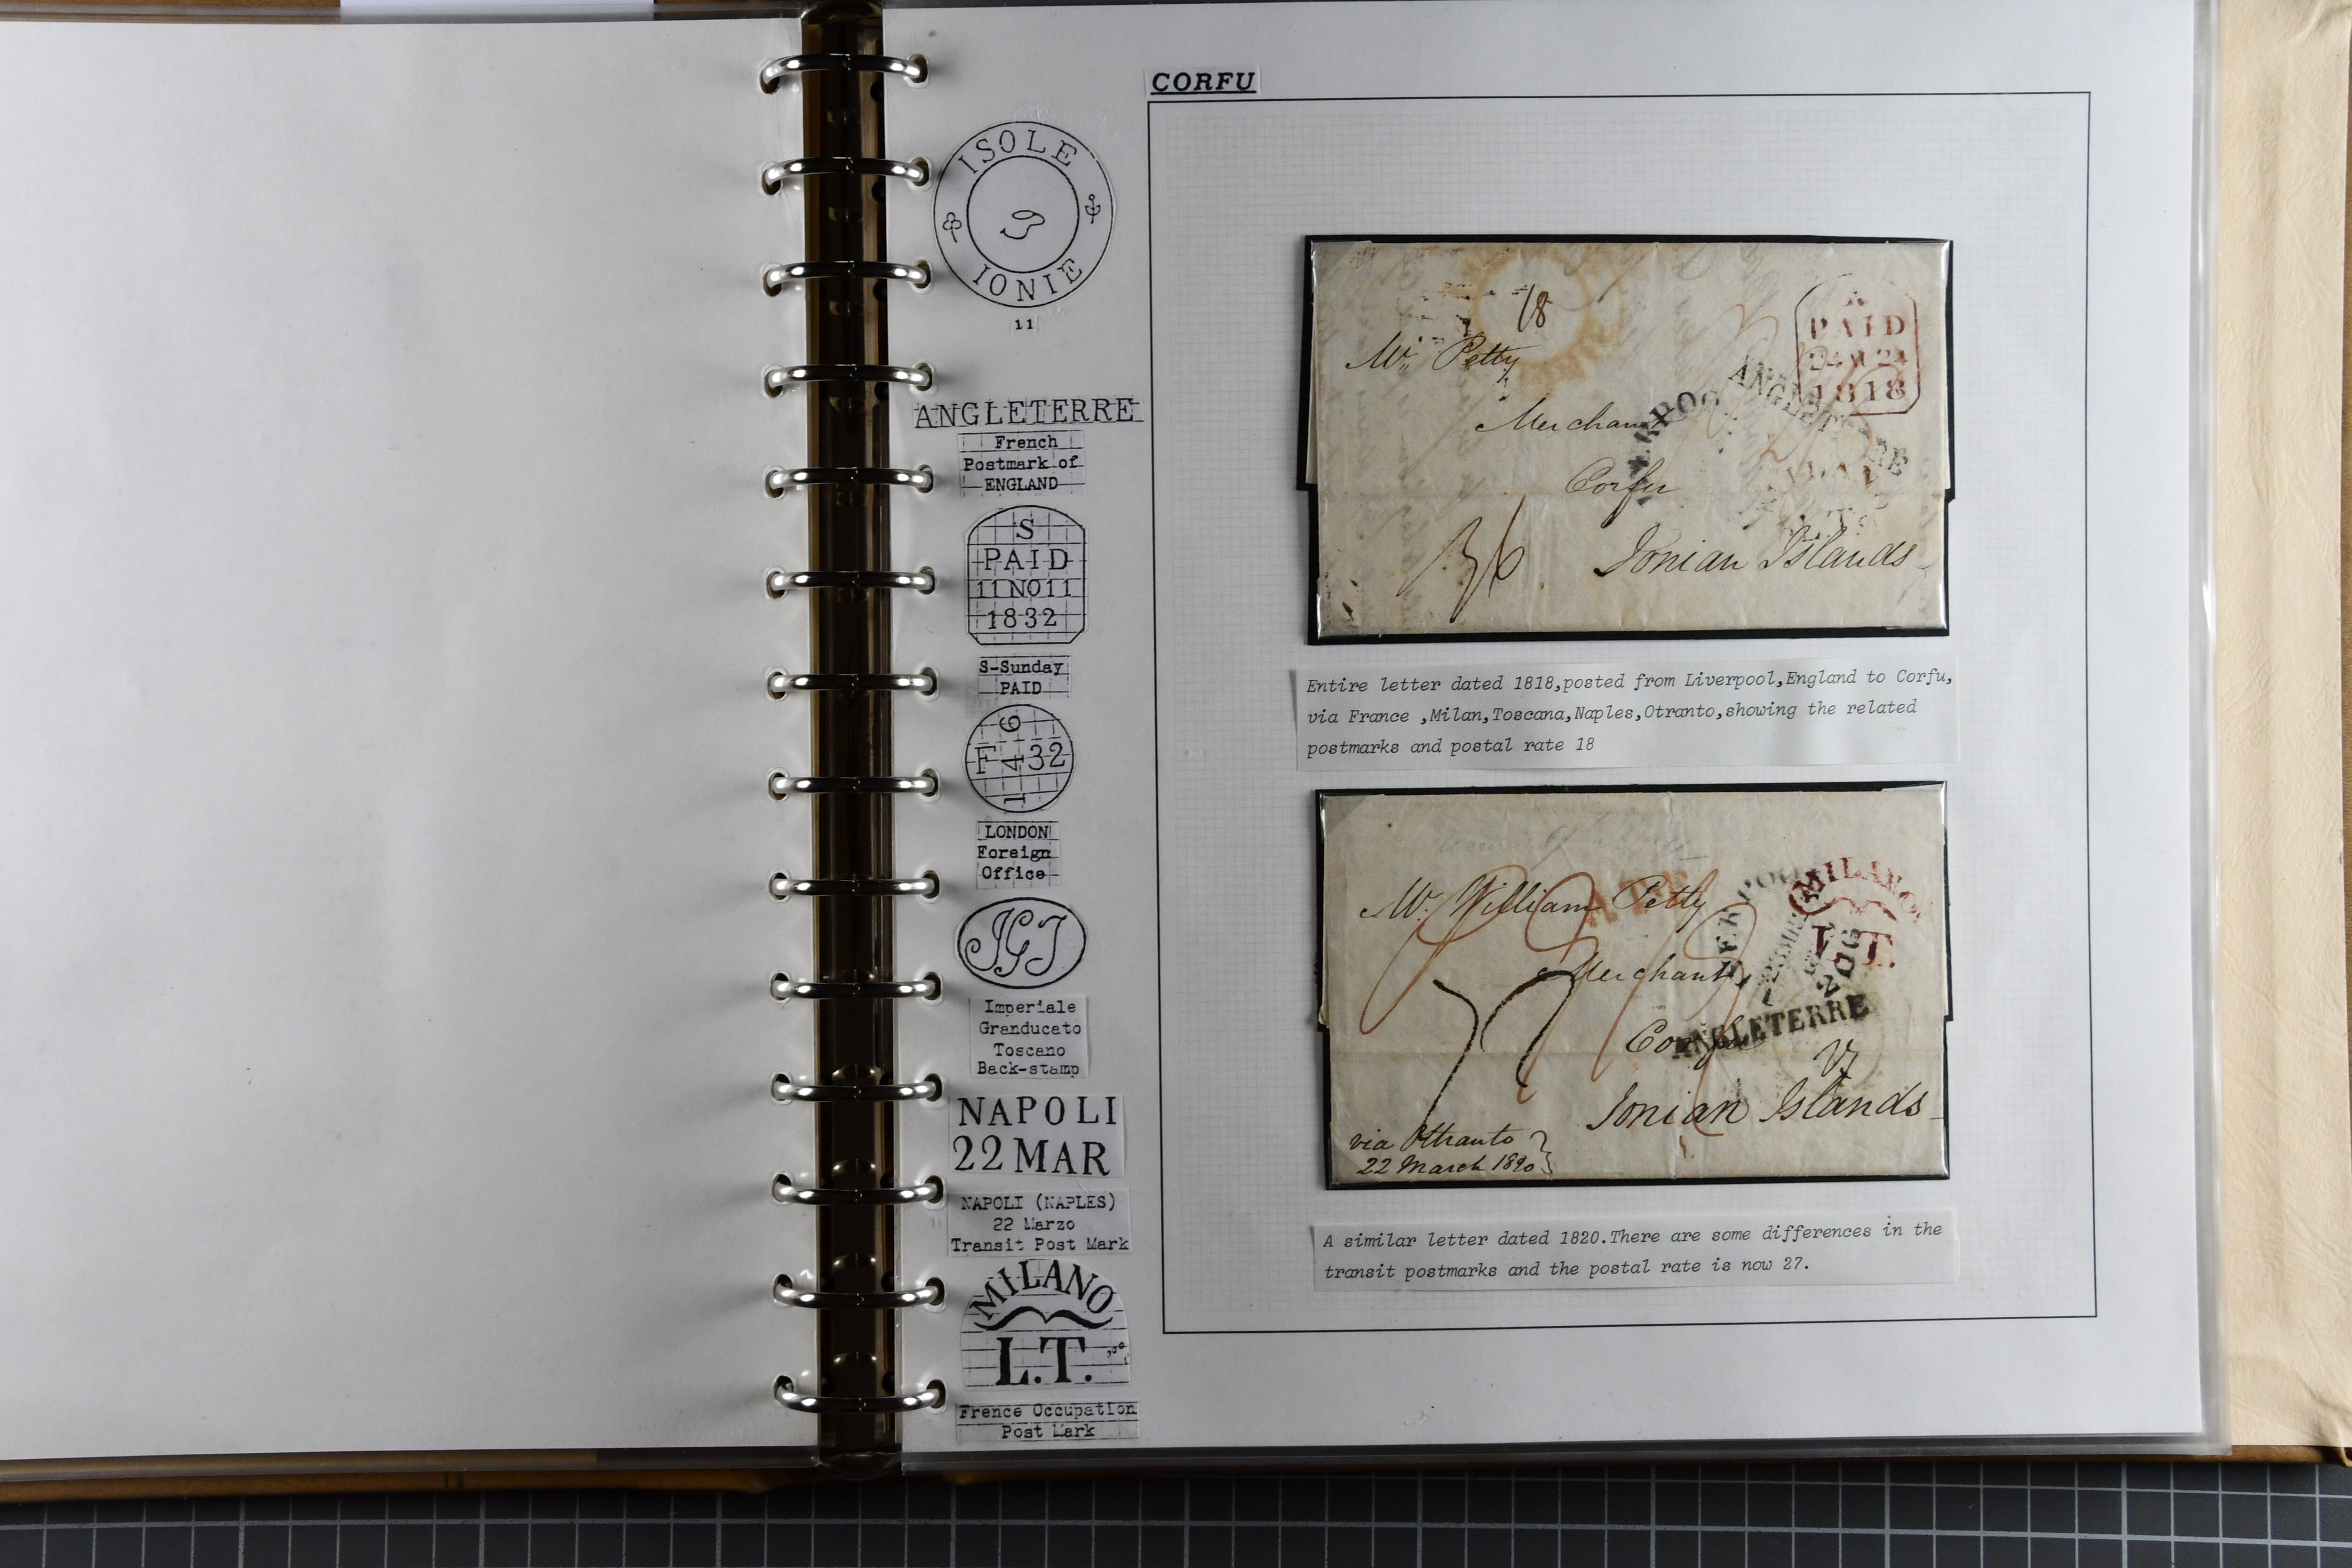 CORFU
ISOLE
IONIE
11
ANGLETERRE
French
Postmark of
ENGLAND
S
PAID
11 NO 11
1832
S-Sunday
PAID
F 32
LONDON
Foreign
Office
JGJ
Imperiale
Granducato
Toscano
Back-stamp
NAPOLI
22 MAR
NAPOLI (NAPLES)
22 Marzo
Transit Post Mark
MILANO
L.T.
Frence Occupation
Post Mark
18
PAID
1818
Mr. Petty
ANGLETERRE
Merchant
Corfu
Ionian Islands
36
Entire letter dated 1818,posted from Liverpool,England to Corfu,
via France ,Milan,Toscana,Naples,Otranto,showing the related
postmarks and postal rate 18
MILANO
L.T.
Mr. William Petty
Merchant
Corfu
ANGLETERRE
Ionian Islands
via Ottranto
22 March 1820
A similar letter dated 1820.There are some differences in the
transit postmarks and the postal rate is now 27.